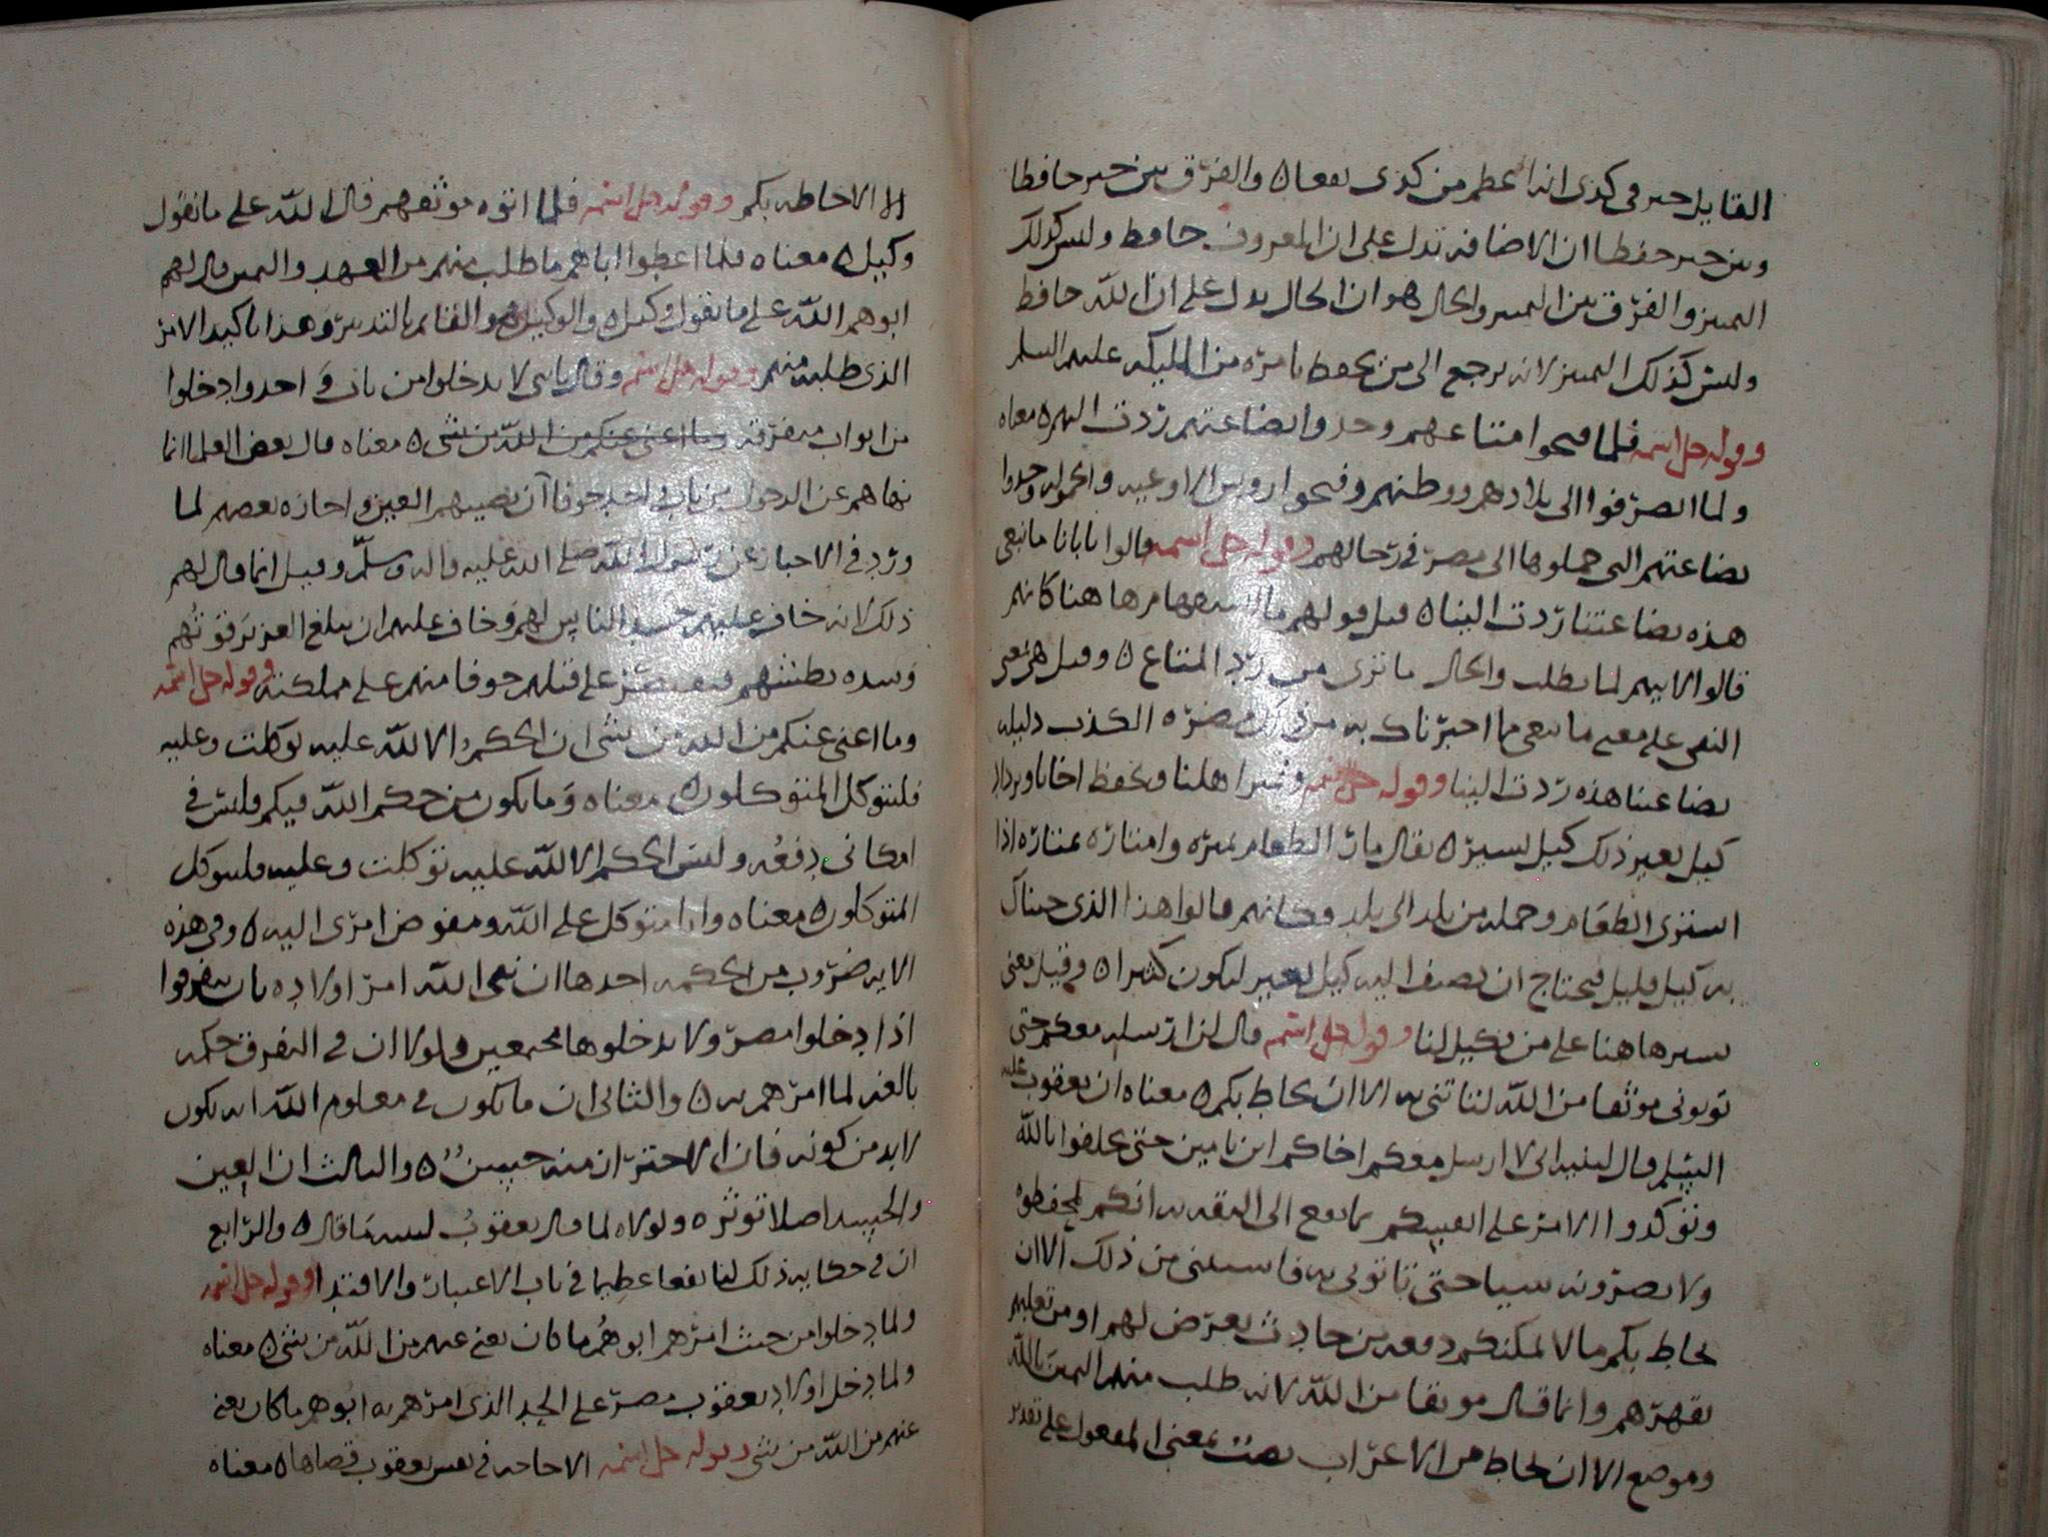 القايل خير في كذى انه اعظم من كذى نفعا ه والفرق بين خير حافظا
وبين خير حفظا ان الاضافه تدل على ان المعروف حافظ وليس كذلك
التمييز والفرق بين التمييز والحال هو ان الحال يدل على ان الله حافظ
وليس كذلك التمييز لانه يرجع الى من يحفظ بامره من المليكه عليهم السلم
وقوله جل اسمه فلما فتحوا متاعهم وجدوا بضاعتهم ردت اليهم ه معناه
ولما انصرفوا الى بلادهم ووطنهم وفتحوا روس الاوعيه والحموله وجدوا
بضاعتهم التى حملوها الى مصر في رحالهم وقوله جل اسمه قالوا يابانا ما نبغى
هذه بضاعتنا ردت الينا ه قيل قولهم ما استفهام هاهنا كانهم
قالوا لابيهم لما نطلب والحال ما ترى من رد المتاع ه وقيل هى بمعنى
النفى على معنى ما نبغى مما اخبرناك به من ملك مصر ه الكذب دليله
بضاعتنا هذه ردت الينا وقوله جل اسمه ونمير اهلنا ونحفظ اخانا ونزداد
كيل بعير ذلك كيل يسير ه يقال مار الطعام يميره وامتاره يمتاره اذا
اشترى الطعام وحمله من بلد الى بلد وكانهم قالوا هذا الذى جيناك
به كيل قليل فيحتاج ان نضيف اليه كيل بعير ليكون كثيرا ه وقيل يعنى
يسير هاهنا على من يكيل لنا وقوله جل اسمه قال لن ارسله معكم حتى
توتونى موثقا من الله لتاتننى به الا ان يحاط بكم ه معناه ان يعقوب عليه
السلم قال لبنيه انى لا ارسل معكم اخاكم ابن يامين حتى تحلفوا بالله
وتوكدوا الامر على انفسكم بما يقع الى الثقه به انكم تحفظوه
ولا تضرونه شيا حتى تاتونى به فاستثنى من ذلك الا ان
يحاط بكم مالا يمكنكم دفعه من حادث يعرض لهم او من
يقهرهم وانما قال موثقا من الله لانه طلب منهم اليمين بالله
وموضع الا ان يحاط من الاعراب نصب بمعنى المفعول على تقدير
الا الاحاطه بكم وقوله جل اسمه فلما اتوه موثقهم قال الله على ما نقول
وكيل ه معناه فلما اعطوا اباهم ما طلب منهم من العهد واليمين قال لهم
ابوهم الله على ما نقول وكيل ه والوكيل هو القايم بالتدبير وهذا تاكيد الامر
الذى طلبه منهم وقوله جل اسمه وقال يابنى لا تدخلوا من باب واحد وادخلوا
من ابواب متفرقه وما اغنى عنكم من الله من شى ه معناه قال بعض العلما انما
نهاهم عن الدخول من باب واحد خوفا ان تصيبهم العين واجازه بعضهم لما
ورد في الاخبار عن رسول الله صلى الله عليه واله وسلم وقيل انما قال لهم
ذلك لانه خاف عليهم حسد الناس لهم وخاف عليهم ان يبلغ العزيز قوتهم
وشده بطشهم على قتلهم خوفا منهم على مملكته وقوله جل اسمه
وما اغنى عنكم من الله من شى ان الحكم الا لله عليه توكلت وعليه
فليتوكل المتوكلون معناه وما يكون من حكم الله فيكم فليس في
امكانى دفعه وليس الحكم الا لله عليه توكلت وعليه فليتوكل
المتوكلون معناه وانا متوكل على الله ومفوض امرى اليه ه وفى هذه
الايه ضروب من الحكمه احدها ان نبى الله امر اولاده بان يتفرقوا
اذا دخلوا مصر ولا يدخلوها مجتمعين ولولا ان في التفرق حكمه
بالغه لما امرهم به ه والثانى ان ما يكون في معلوم الله انه يكون
لابد من كونه فان الاحتراز منه حسن ه والثالث ان العين
والحسد اصلا توثره ولولاه لما قال يعقوب لبنيه ما قال ه والرابع
ان في حكايه ذلك لنا نفعا عظيما في باب الاعتبار والاقتدا وقوله جل اسمه
ولما دخلوا من حيث امرهم ابوهم ما كان يغنى عنهم من الله من شى ه معناه
ولما دخل اولاد يعقوب مصر على الحد الذى امرهم به ابوهم ما كان يغنى
عنهم من الله من شى وقوله جل اسمه الا حاجه في نفس يعقوب قضاها ه معناه